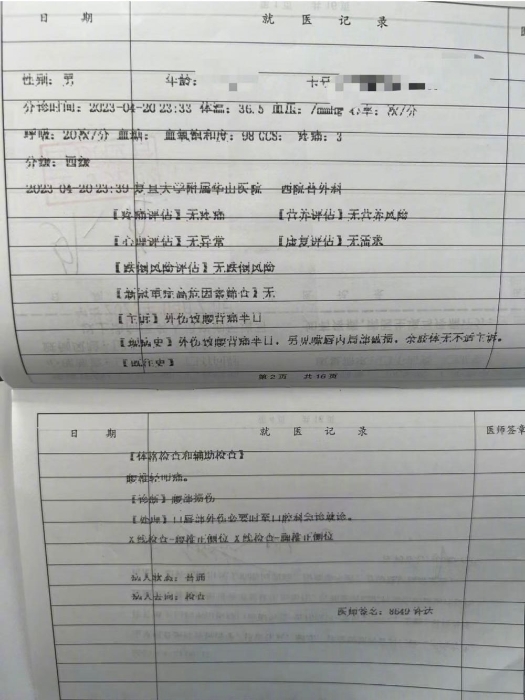 日 期 就 医 记 录
性别：男 年龄： 卡号
分诊时间：2023-04-20 23:33 体温：36.5 血压：/mmHg 心率：次/分
呼吸：20次/分 血糖： 血氧饱和度：98 GCS： 疼痛：3
分级：四级
2023-04-20 23:39 复旦大学附属华山医院 西院普外科
【疼痛评估】无疼痛 【营养评估】无营养风险
【心理评估】无异常 【康复评估】无需求
【跌倒风险评估】无跌倒风险
【新冠重症高危因素筛查】无
【主诉】外伤致腰背痛半日
【现病史】外伤致腰背痛半日，另见嘴唇内局部破损，余肢体无不适主诉。
【既往史】
第2页 共16页
日 期 就 医 记 录 医师签章
【体格检查和辅助检查】
腰椎轻叩痛。
【诊断】腰部损伤
【处理】口唇部外伤必要时至口腔科会诊就诊。
X线检查-腰椎正侧位 X线检查-胸椎正侧位
病人状态：普通
病人去向：检查
医师签名：8649